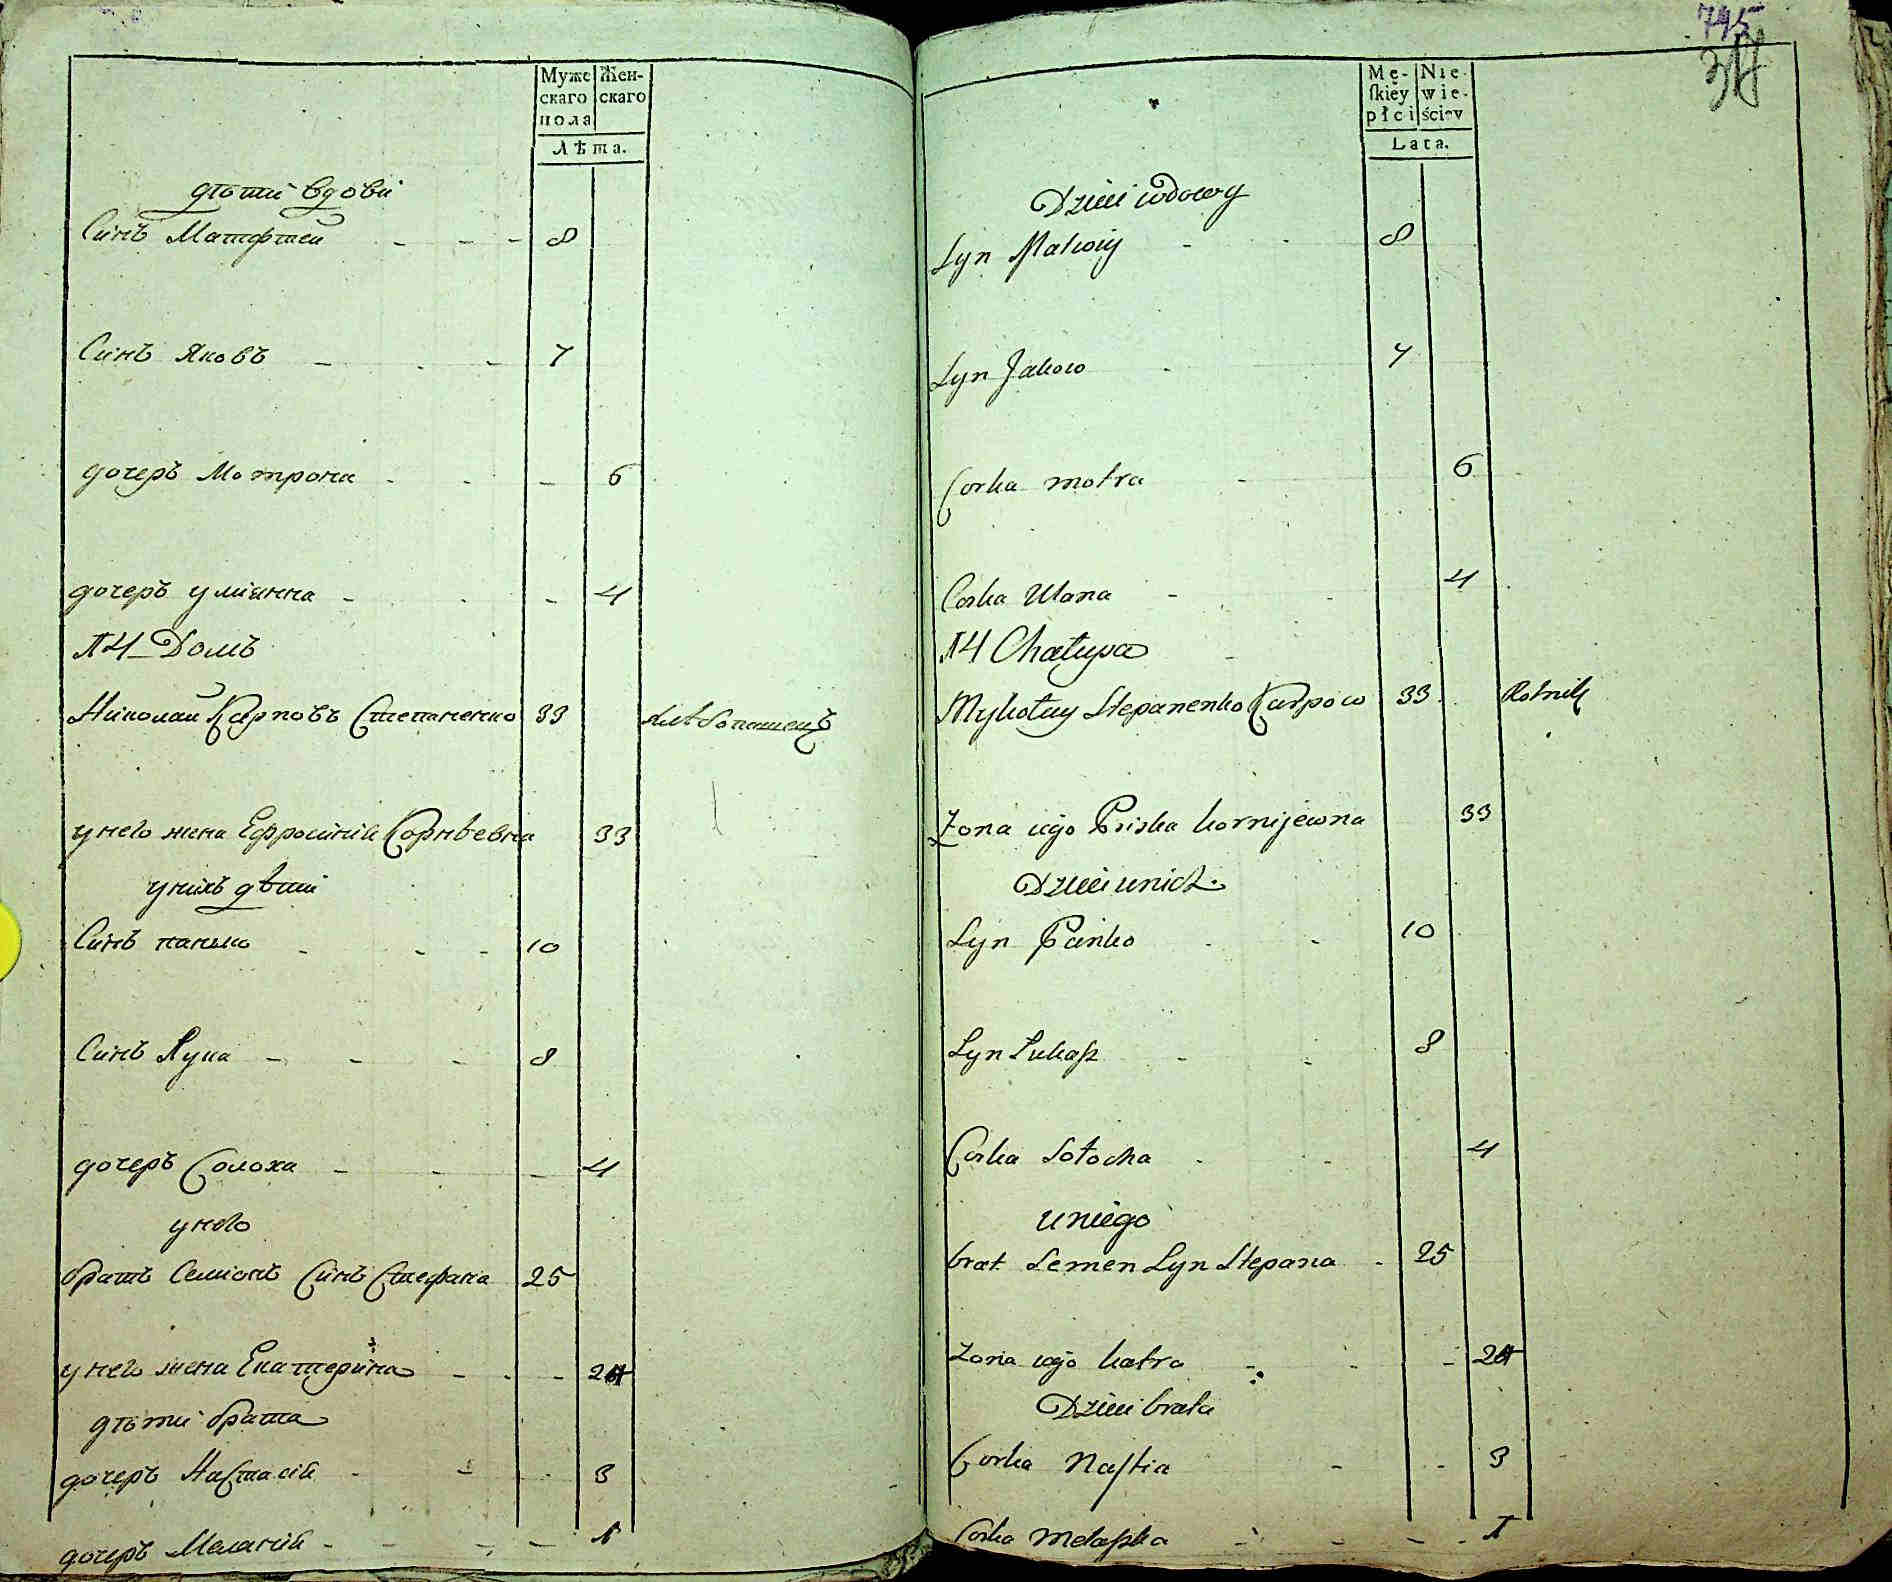 Муже
скаго
пола
Жен-
скаго
Лѣта.
дѣти вдови
Синъ Матфтей - - - 8
Синъ Яковъ - - - 7
дочеръ Мотрона - - - 6
дочеръ улiянна - - - 4
№4 Домъ
Николай Карповъ Степаненко 33 хлѣбопашецъ
у него жена Ефросинiя Корнѣевна 33
у нихъ дѣти
Синъ панько - - - 10
Синъ Лука - - - 8
дочеръ Солоха - - - 4
у него
братъ Семионъ Синъ Стефана 25
у него жена Екатерина - - - 24
дѣти брата
дочеръ Настасiя - - - 3
дочеръ Меланiя - - - 1
795
Mę-
ſkiéy
płci
Nie-
wie-
ściey
Lata.
Dzieci wdowy
Syn Matwiy - - 8
Syn Jakow - 7
Corka motra - 6
Corka Ulana - - 4
№4 Chałupa
Mykołay Stepanenko Karpow 33 Rolnik
Żona iego Priska kornijewna 33
Dzieci u nich
Syn Pańko - - 10
Syn Łukaſz - - 8
Corka Sołocha - - 4
u niego
brat Semen Syn Stepana - 25
Żona iego katra - - - 24
Dzieci brata
Corka Naſtia - - 3
Corka Melaſzka - - - - 1